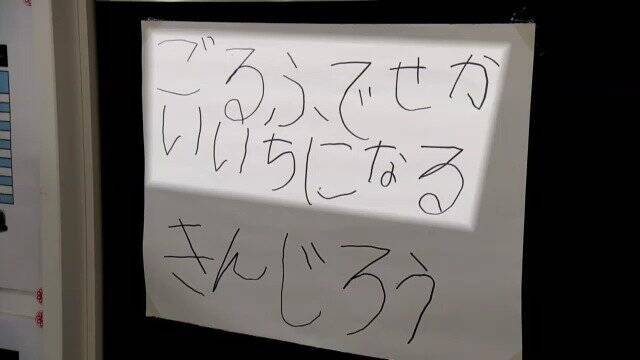 ごるふでせか
いいちになる
きんじろう